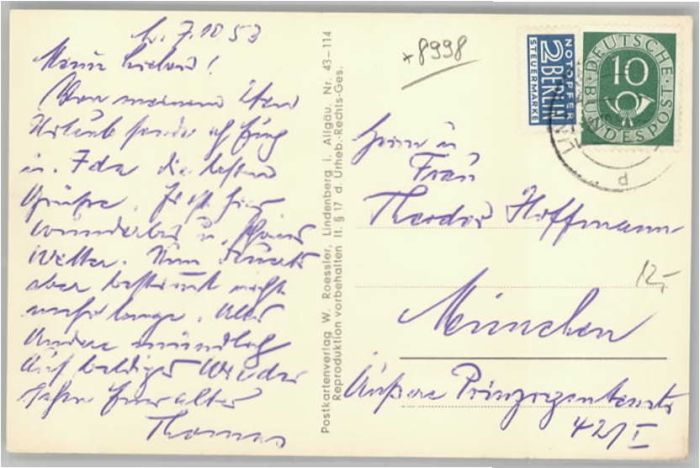 7.10 53
Meine Lieben!
Von meinem
Urlaub sende ich Euch
u. Ida die besten
Grüsse. Es ist hier
wunderbar u.
Wetter. Nun
aber bestimmt nicht
mehr lange. Alles
Andere mündlich
Auf baldiges Wieder
sehn Euer alter
Thomas
Postkartenverlag W. Roessler, Lindenberg i. Allgäu, Nr. 43-114
Reproduktion vorbehalten lt. § 17 d. Urheb.-Rechts-Ges.
*8998
NOTOPFER
2 BERLIN
STEUERMARKE
DEUTSCHE
BUNDESPOST
10
Herrn u
Frau
Theodor Hoffmann
12,-
München
Äußere Prinzregentenstr
42/I